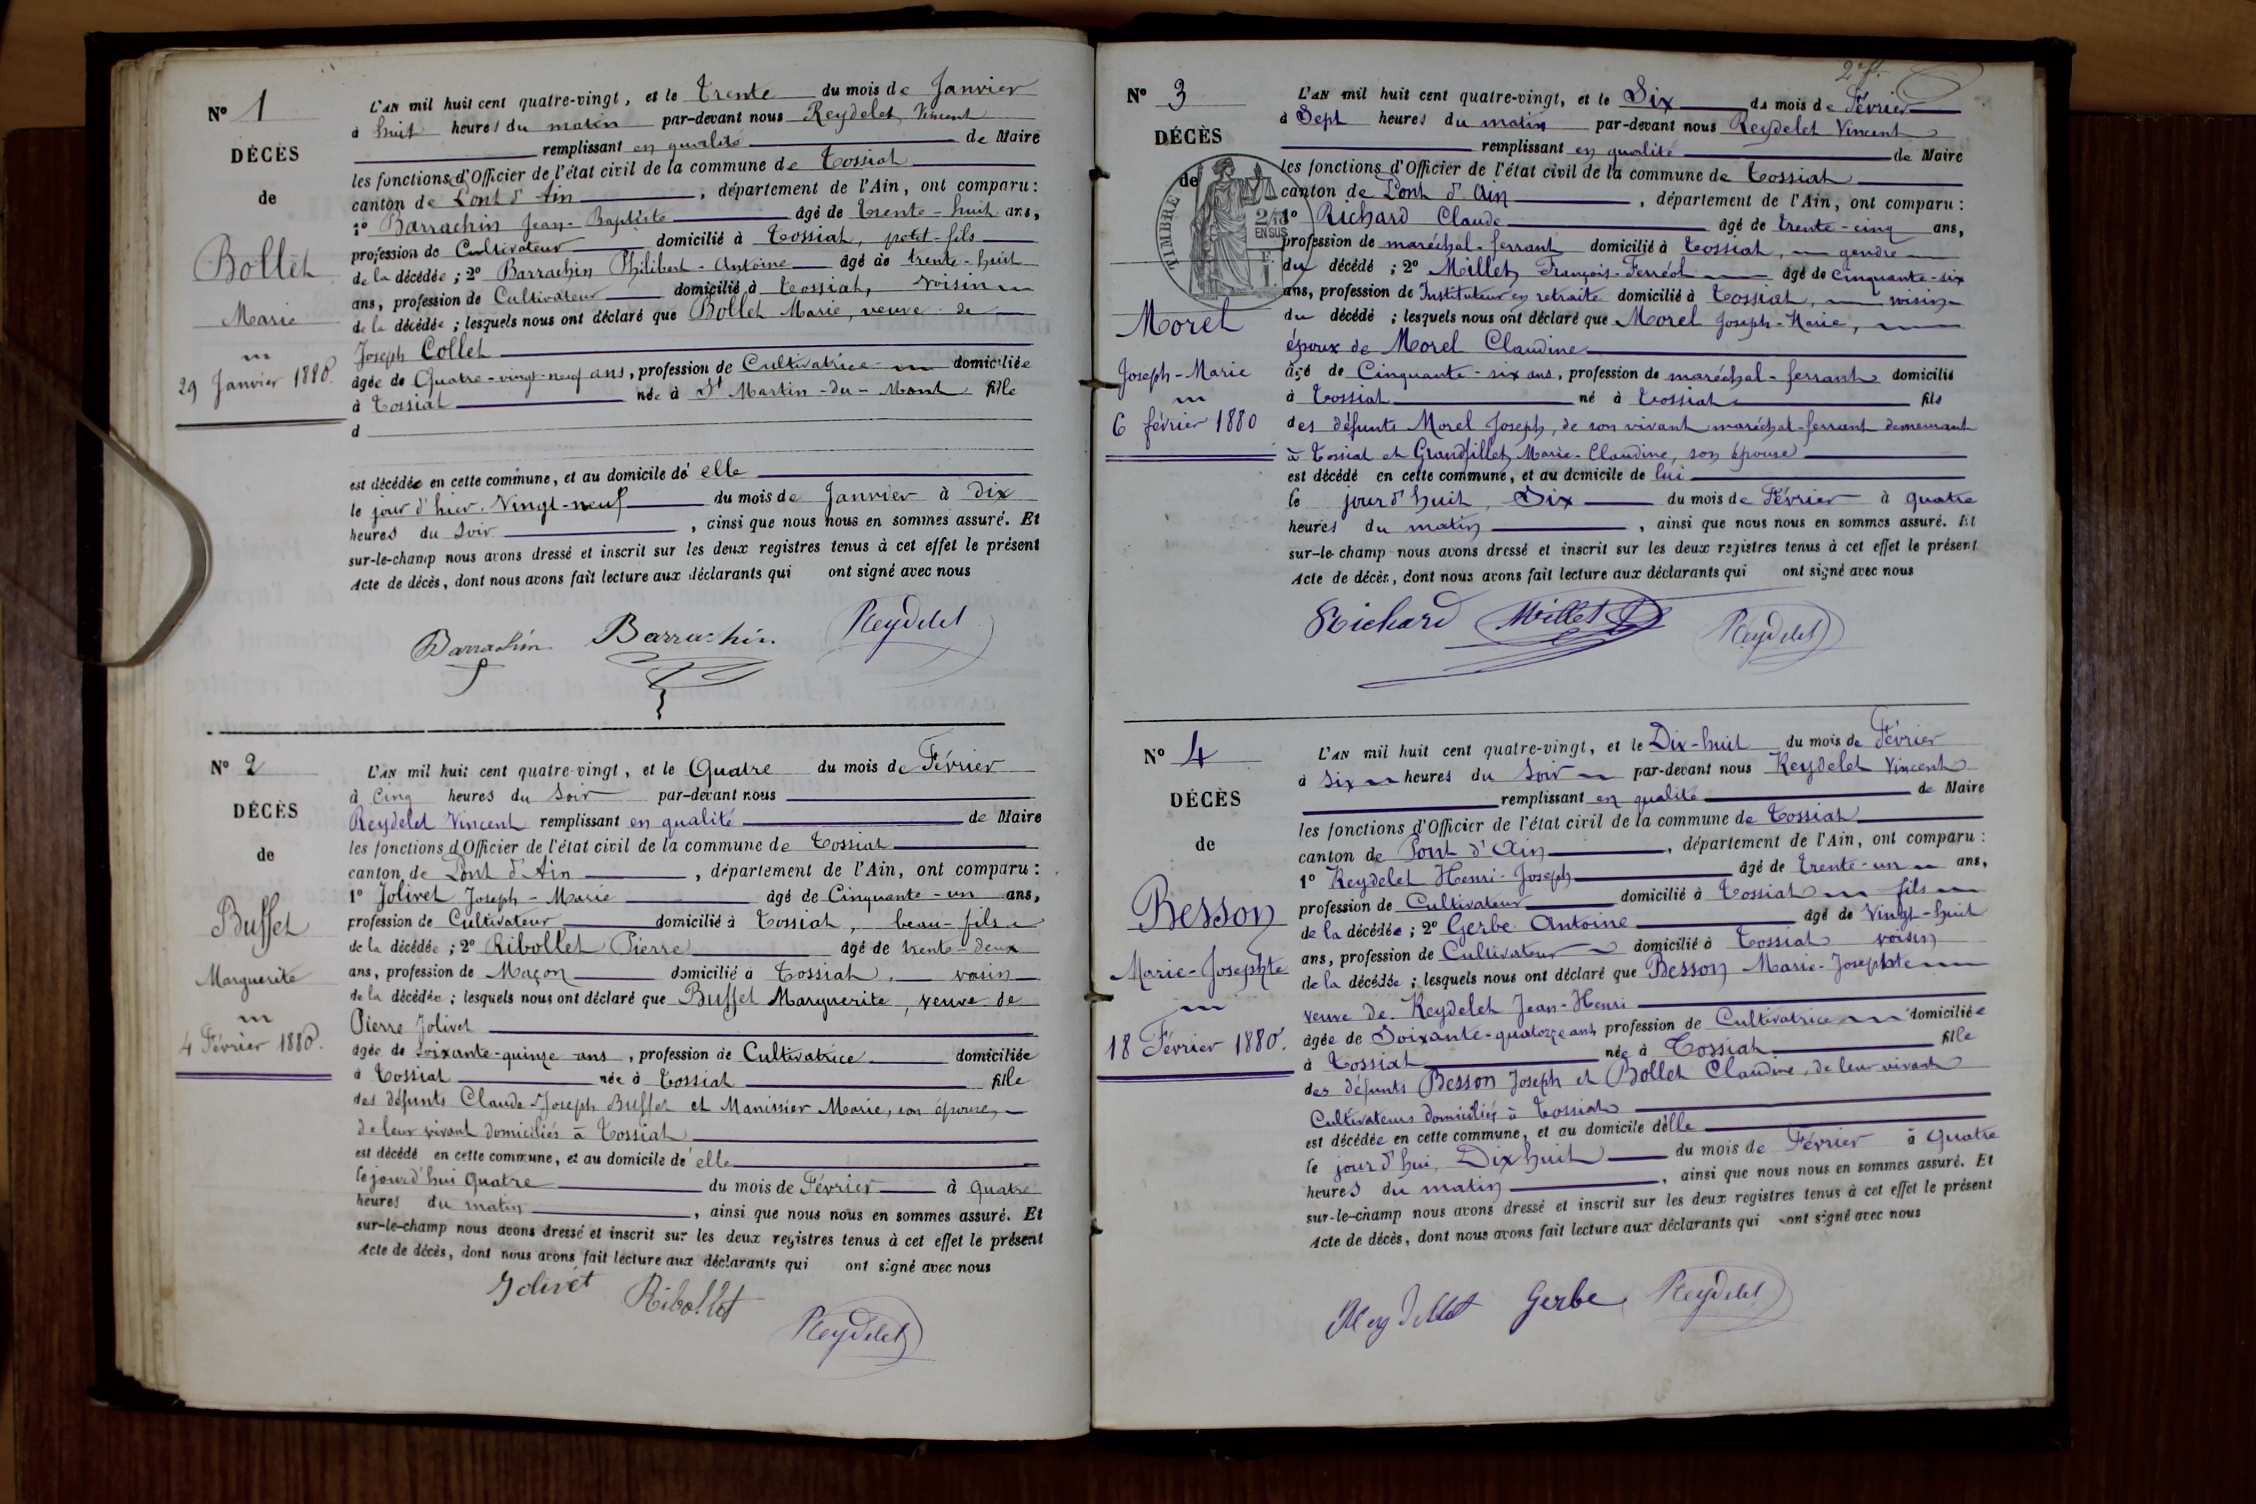 N° 1
DÉCÈS
de
Bollet
Marie
29 Janvier 1880.
L'AN mil huit cent quatre-vingt, et le Trente du mois de Janvier
à huit heures du matin par-devant nous Reydelet Vincent
remplissant en qualité de Maire
les fonctions d'Officier de l'état civil de la commune de Tossiat
canton de Pont d'Ain, département de l'Ain, ont comparu :
1° Barrachin Jean-Baptiste âgé de trente-huit ans,
profession de Cultivateur domicilié à Tossiat, petit-fils
de la décédée ; 2° Barrachin Philibert-Antoine âgé de trente-huit
ans, profession de Cultivateur domicilié à Tossiat, voisin
de la décédée ; lesquels nous ont déclaré que Bollet Marie, veuve de
Joseph Collet
âgée de Quatre-vingt-neuf ans, profession de Cultivatrice domiciliée
à Tossiat née à St Martin-du-Mont fille
d
est décédée en cette commune, et au domicile de elle
le jour d'hier, Vingt-neuf du mois de Janvier à dix
heures du soir, ainsi que nous nous en sommes assuré. Et
sur-le-champ nous avons dressé et inscrit sur les deux registres tenus à cet effet le présent
Acte de décès, dont nous avons fait lecture aux déclarants qui ont signé avec nous
Barrachin Barrachin Reydelet
N° 2
DÉCÈS
de
Buffet
Marguerite
4 Février 1880.
L'AN mil huit cent quatre-vingt, et le Quatre du mois de Février
à Cinq heures du Soir par-devant nous
Reydelet Vincent remplissant en qualité de Maire
les fonctions d'Officier de l'état civil de la commune de Tossiat
canton de Pont d'Ain, département de l'Ain, ont comparu :
1° Jolivet Joseph-Marie âgé de Cinquante-un ans,
profession de Cultivateur domicilié à Tossiat, beau-fils
de la décédée ; 2° Ribollet Pierre âgé de trente-deux
ans, profession de Maçon domicilié à Tossiat, voisin
de la décédée ; lesquels nous ont déclaré que Buffet Marguerite, veuve de
Pierre Jolivet
âgée de soixante-quinze ans, profession de Cultivatrice domiciliée
à Tossiat née à Tossiat fille
des défunts Claude-Joseph Buffet et Manissier Marie, son épouse,
de leur vivant domiciliés à Tossiat
est décédé en cette commune, et au domicile de elle
le jourd'hui Quatre du mois de Février à Quatre
heures du matin, ainsi que nous nous en sommes assuré. Et
sur-le-champ nous avons dressé et inscrit sur les deux registres tenus à cet effet le présent
Acte de décès, dont nous avons fait lecture aux déclarants qui ont signé avec nous
Jolivet Ribollet Reydelet
N° 3
DÉCÈS
de
TIMBRE
2/10
EN SUS
Morel
Joseph-Marie
6 février 1880
L'AN mil huit cent quatre-vingt, et le Six du mois de Février
à Sept heures du matin par-devant nous Reydelet Vincent
remplissant en qualité de Maire
les fonctions d'Officier de l'état civil de la commune de Tossiat
canton de Pont d'Ain, département de l'Ain, ont comparu :
1° Richard Claude âgé de trente-cinq ans,
profession de maréchal-ferrant domicilié à Tossiat, gendre
du décédé ; 2° Millet François-Ferréol âgé de Cinquante-six
ans, profession de Instituteur en retraite domicilié à Tossiat, voisin
du décédé ; lesquels nous ont déclaré que Morel Joseph-Marie,
époux de Morel Claudine
âgé de Cinquante-six ans, profession de maréchal-ferrant domicilié
à Tossiat né à Tossiat fils
des défunts Morel Joseph, de son vivant maréchal-ferrant demeurant
à Tossiat et Grandfillet Marie-Claudine, son épouse
est décédé en cette commune, et au domicile de lui
le jour d'huit, Six du mois de Février à quatre
heures du matin, ainsi que nous nous en sommes assuré. Et
sur-le-champ nous avons dressé et inscrit sur les deux registres tenus à cet effet le présent
Acte de décès, dont nous avons fait lecture aux déclarants qui ont signé avec nous
Richard Millet Reydelet
N° 4
DÉCÈS
de
Besson
Marie-Josephte
18 Février 1880.
L'AN mil huit cent quatre-vingt, et le Dix-huit du mois de Février
à six heures du Soir par-devant nous Reydelet Vincent
remplissant en qualité de Maire
les fonctions d'Officier de l'état civil de la commune de Tossiat
canton de Pont d'Ain, département de l'Ain, ont comparu :
1° Reydelet Henri-Joseph âgé de trente-un ans,
profession de Cultivateur domicilié à Tossiat fils
de la décédée ; 2° Gerbe Antoine âgé de Vingt-huit
ans, profession de Cultivateur domicilié à Tossiat voisin
de la décédée ; lesquels nous ont déclaré que Besson Marie-Josephte
veuve de Reydelet Jean-Henri
âgée de Soixante-quatorze ans, profession de Cultivatrice domiciliée
à Tossiat née à Tossiat fille
des défunts Besson Joseph et Bollet Claudine, de leur vivant
Cultivateurs domiciliés à Tossiat
est décédée en cette commune, et au domicile d'elle
le jour d'hui, Dix huit du mois de Février à Quatre
heures du matin, ainsi que nous nous en sommes assuré. Et
sur-le-champ nous avons dressé et inscrit sur les deux registres tenus à cet effet le présent
Acte de décès, dont nous avons fait lecture aux déclarants qui ont signé avec nous
Reydelet Gerbe Reydelet